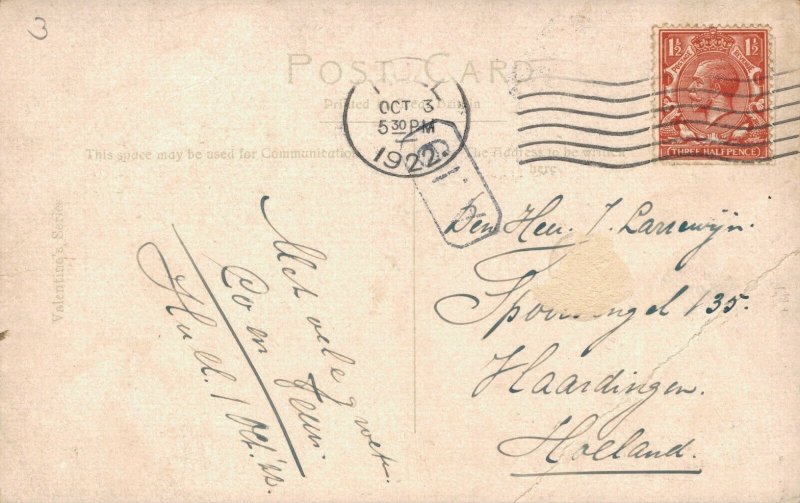 3
POST CARD
Printed in Great Britain
This space may be used for Communication
the Address to be written
here.
OCT 3
5 30 PM
1922
1½ 1½
POSTAGE REVENUE
THREE HALFPENCE
Valentine's Series
Met vele groeten.
Hull. 1 Oct. '22.
Den Heer J. Larsewijn.
135.
Holland.